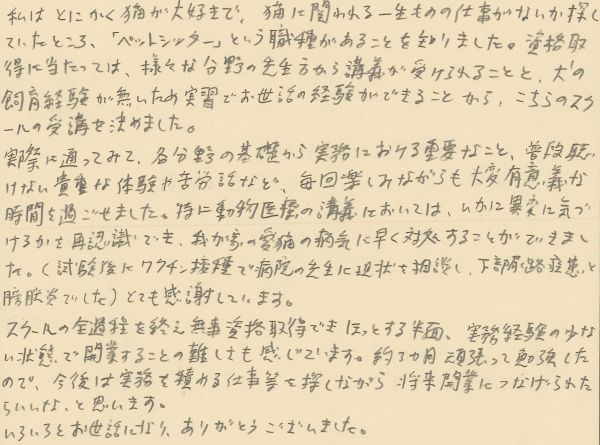 私はとにかく猫が大好きで、猫に関われる一生ものの仕事がないか探し
ていたところ、「ペットシッター」という職種があることを知りました。資格取
得に当たっては、様々な分野の先生方から講義が受けられることと、犬の
飼育経験が無いため実習でお世話の経験ができることから、こちらのスク
ールの受講を決めました。
実際に通ってみて、各分野の基礎から実務における重要なこと、普段聴
けない貴重な体験や苦労話など、毎回楽しみながらも大変有意義な
時間を過ごせました。特に動物医療の講義においては、いかに異変に気づ
けるかを再認識でき、我が家の愛猫の病気に早く対処することができまし
た。(試験後にワクチン接種で病院の先生に現状を相談し、下部尿路疾患と
膀胱炎でした)とても感謝しています。
スクールの全過程を終え無事資格取得できほっとする半面、実務経験の少な
い状態で開業することの難しさも感じています。約3カ月頑張って勉強した
ので、今後は実務を積める仕事等を探しながら将来開業につなげられた
らいいな、と思います。
いろいろとお世話になり、ありがとうございました。